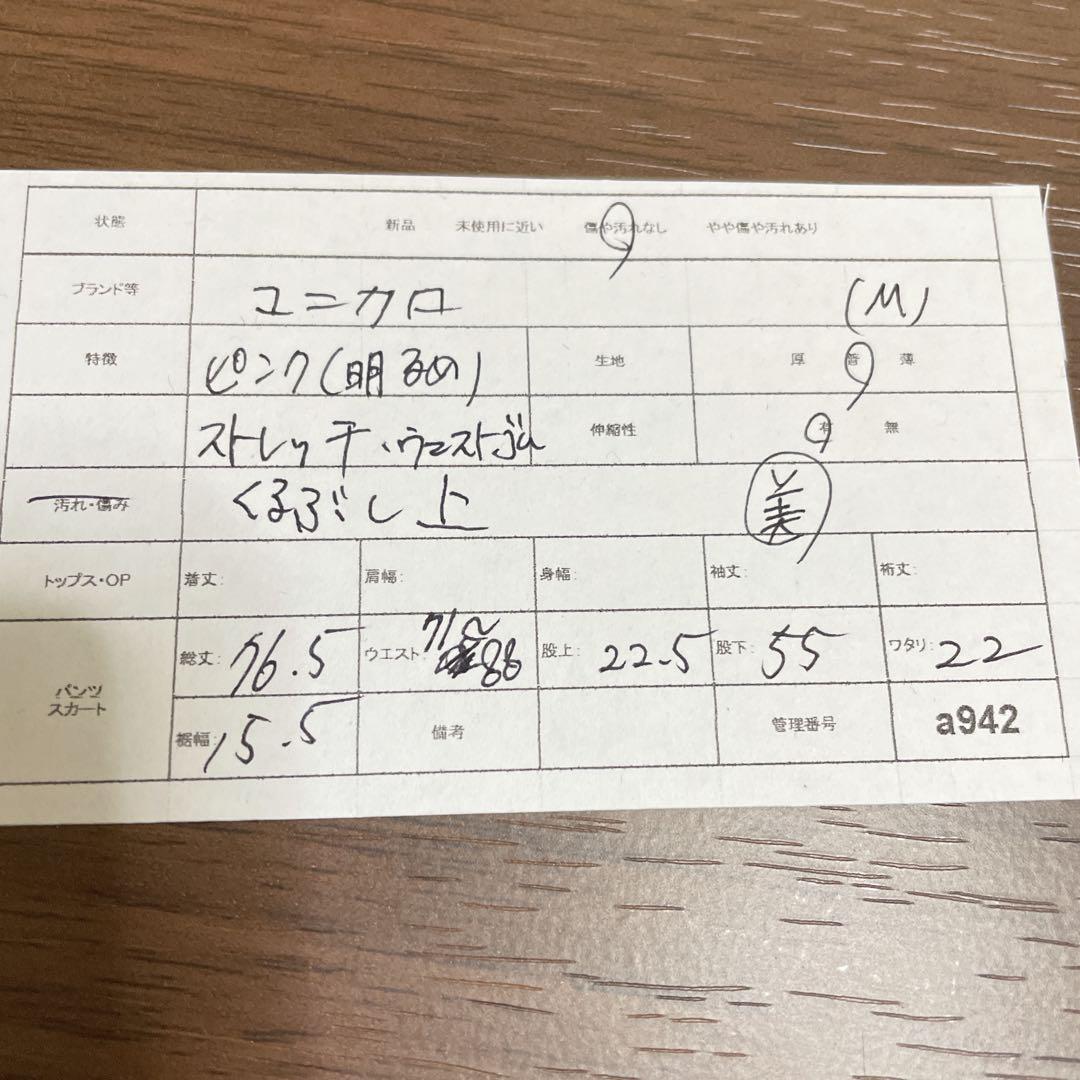 状態 新品 未使用に近い 傷や汚れなし やや傷や汚れあり
ブランド等 ユニクロ (M)
特徴 ピンク(明るめ) 生地 厚 普 薄
ストレッチ・ウエストゴム 伸縮性 有 無
汚れ・傷み くるぶし上 美
トップス・OP 着丈: 肩幅: 身幅: 袖丈: 裄丈:
パンツ スカート 総丈: 76.5 ウエスト: 71〜88 股上: 22.5 股下: 55 ワタリ: 22
裾幅: 15.5 備考 管理番号 a942